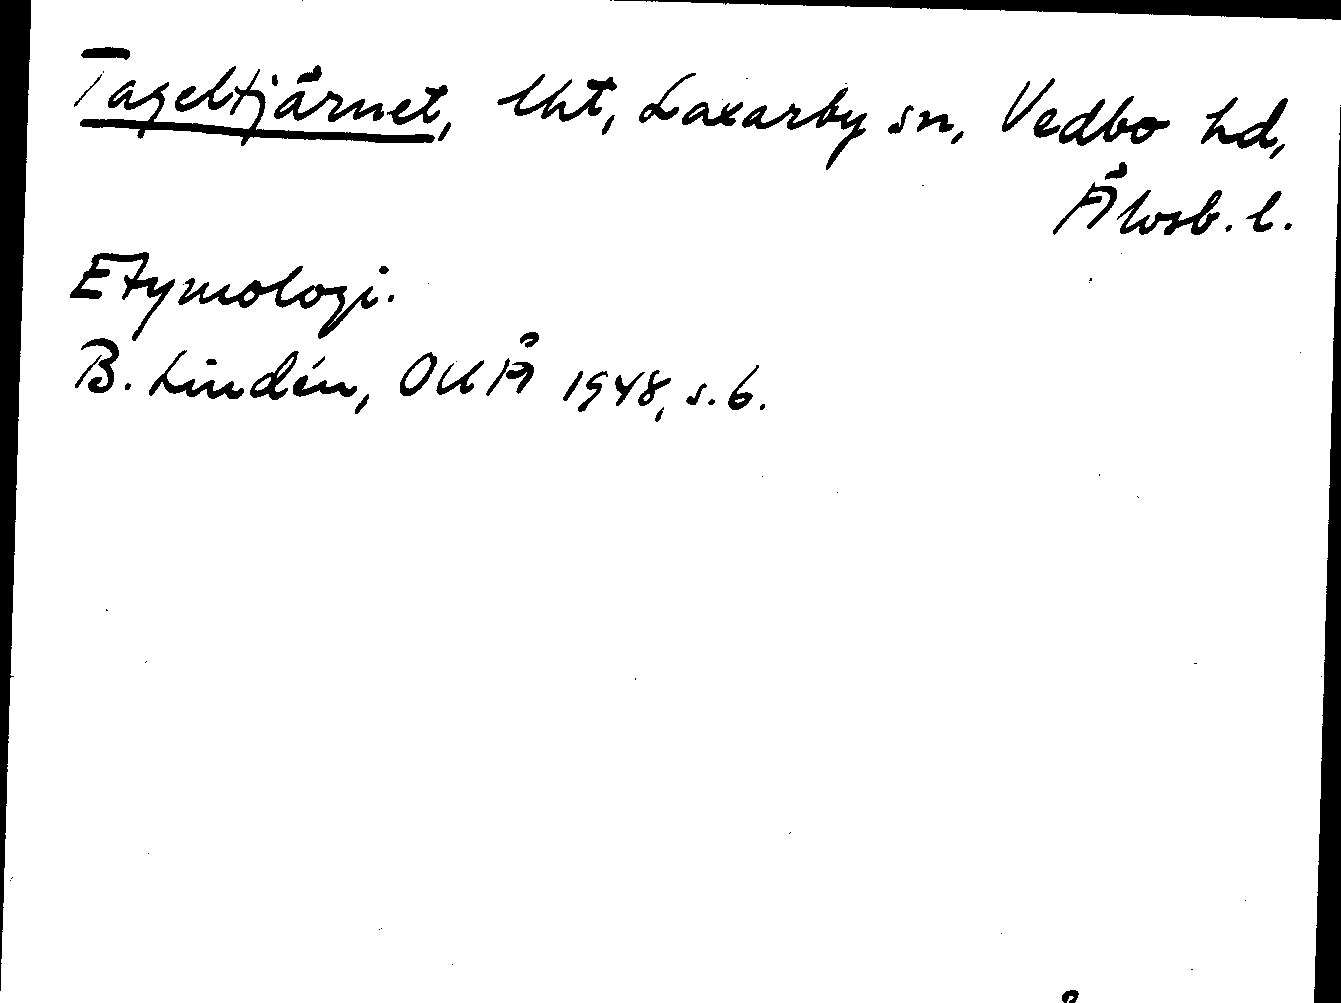 Tageltjärnet, lht, Laxarby sn, Vedbo hd,
Älvsb. l.
Etymologi.
B. Lindén, OUÅ 1948, s. 6.